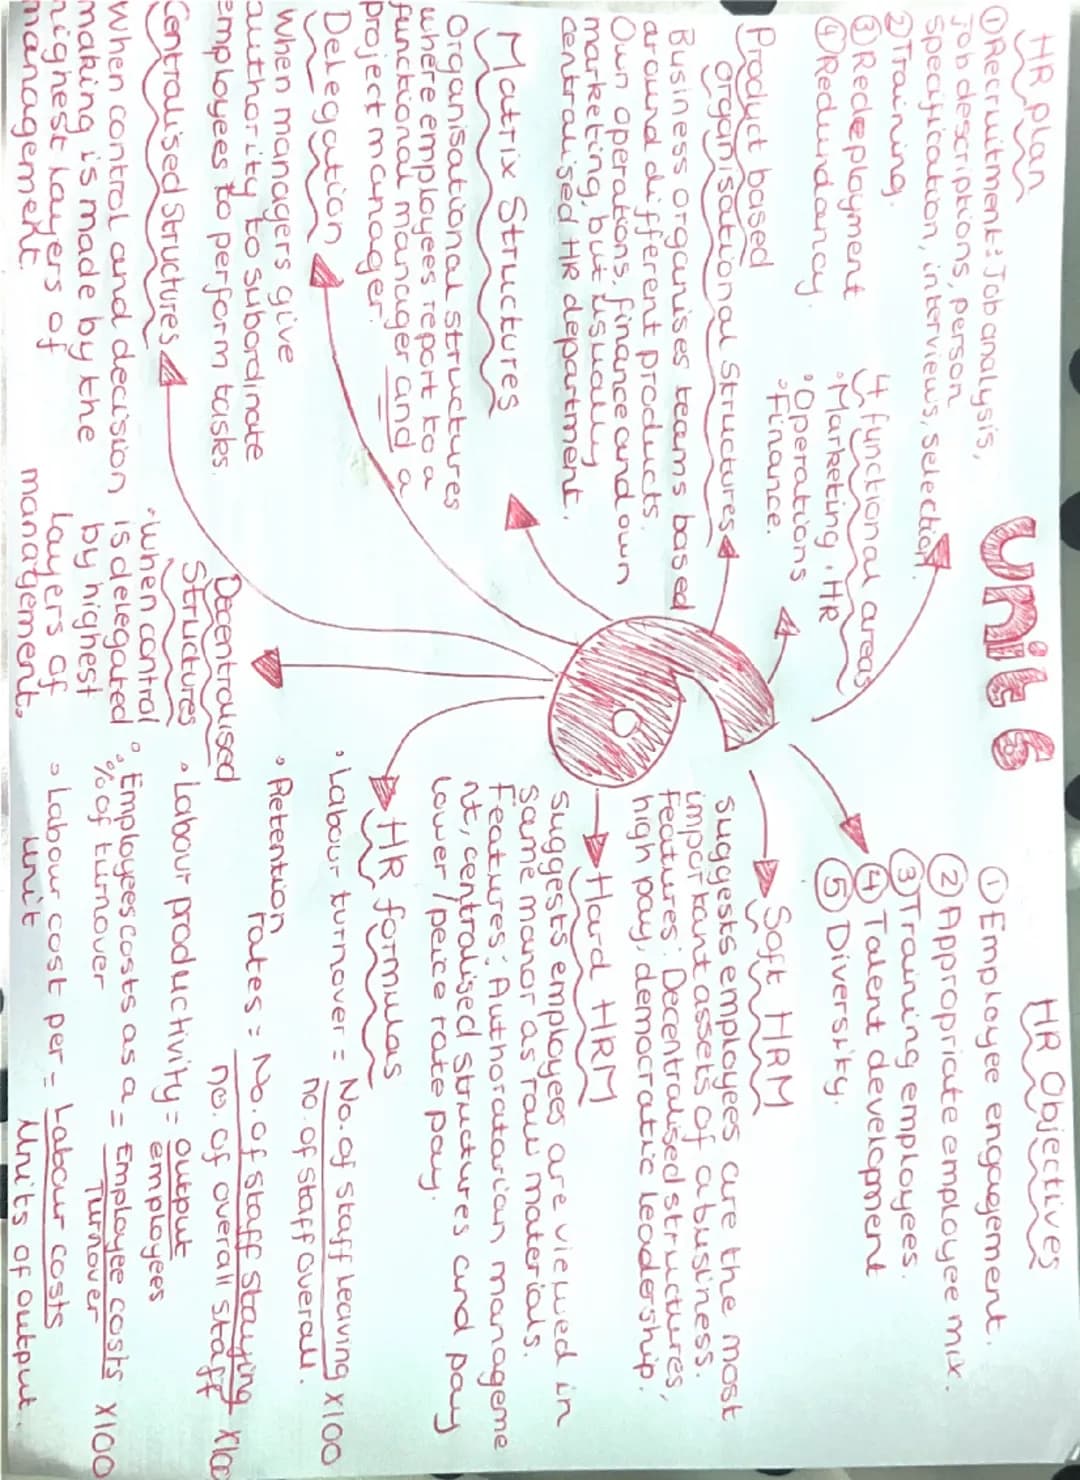 Unit 6
HR plan
① Recruitment: Job analysis,
Job descriptions, person
specification, interviews, selection.
② Training.
③ Redeployment
④ Redundancy.
4 functional areas
· Marketing · HR
· Operations
· Finance.
Product based
organisational structures
Business organises teams based
around different products.
Own operations, finance and own
marketing, but usually
centralised HR department.
Matrix Structures
Organisational structures
where employees report to a
functional manager and a
project manager.
Delegation
When managers give
authority to subordinate
employees to perform tasks.
Centralised Structures
When control and decision
making is made by the
highest layers of
management.
Decentralised
Structures
· When control
is delegated
by highest
layers of
management.
HR Objectives
① Employee engagement.
② Appropriate employee mix.
③ Training employees.
④ Talent development
⑤ Diversity.
Soft HRM
Suggests employees are the most
important assets of a business.
Features: Decentralised structures,
high pay, democratic leadership.
Hard HRM
Suggests employees are viewed in
same manor as raw materials.
Features: Authoratarian manageme
nt, centralised structures and pay
lower/peice rate pay.
HR formulas
· Labour turnover = No. of staff leaving x100
no. of staff overall.
· Retention
rates = No. of staff staying x100
no. of overall staff
· Labour productivity = output
employees
· Employees costs as a = Employee costs x100
% of turnover Turnover
· Labour cost per = Labour costs
unit Units of output.